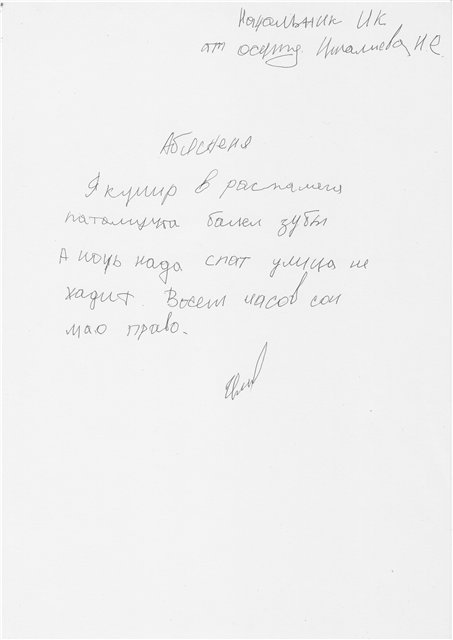 Начальник ИК
от осужд. Исмалиева И С.
Абясненя
Я кушир в распамега
патамушта балел зубы
А ночь нада спат улица не
хадит. Восем часов сон
маю право.